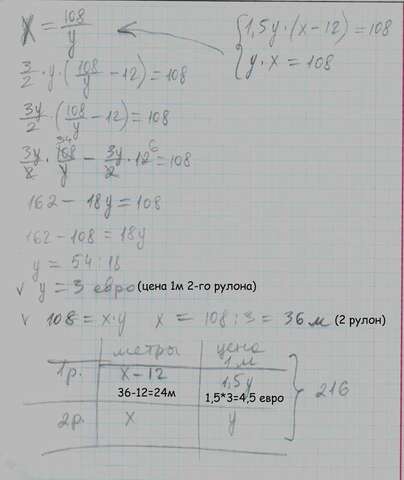 x = 108/y
{ 1,5y · (x − 12) = 108
{ y · x = 108
3/2 · y · (108/y − 12) = 108
3y/2 · (108/y − 12) = 108
3y/2 · 108/y 54 − 3y/2 · 12 6 = 108
162 − 18y = 108
162 − 108 = 18y
y = 54 : 18
v y = 3 евро (цена 1м 2-го рулона)
v 108 = x · y x = 108 : 3 = 36 м (2 рулон)
метры цена 1 м
1р. x − 12 1,5y } 216
36-12=24м 1,5*3=4,5 евро
2р. x y